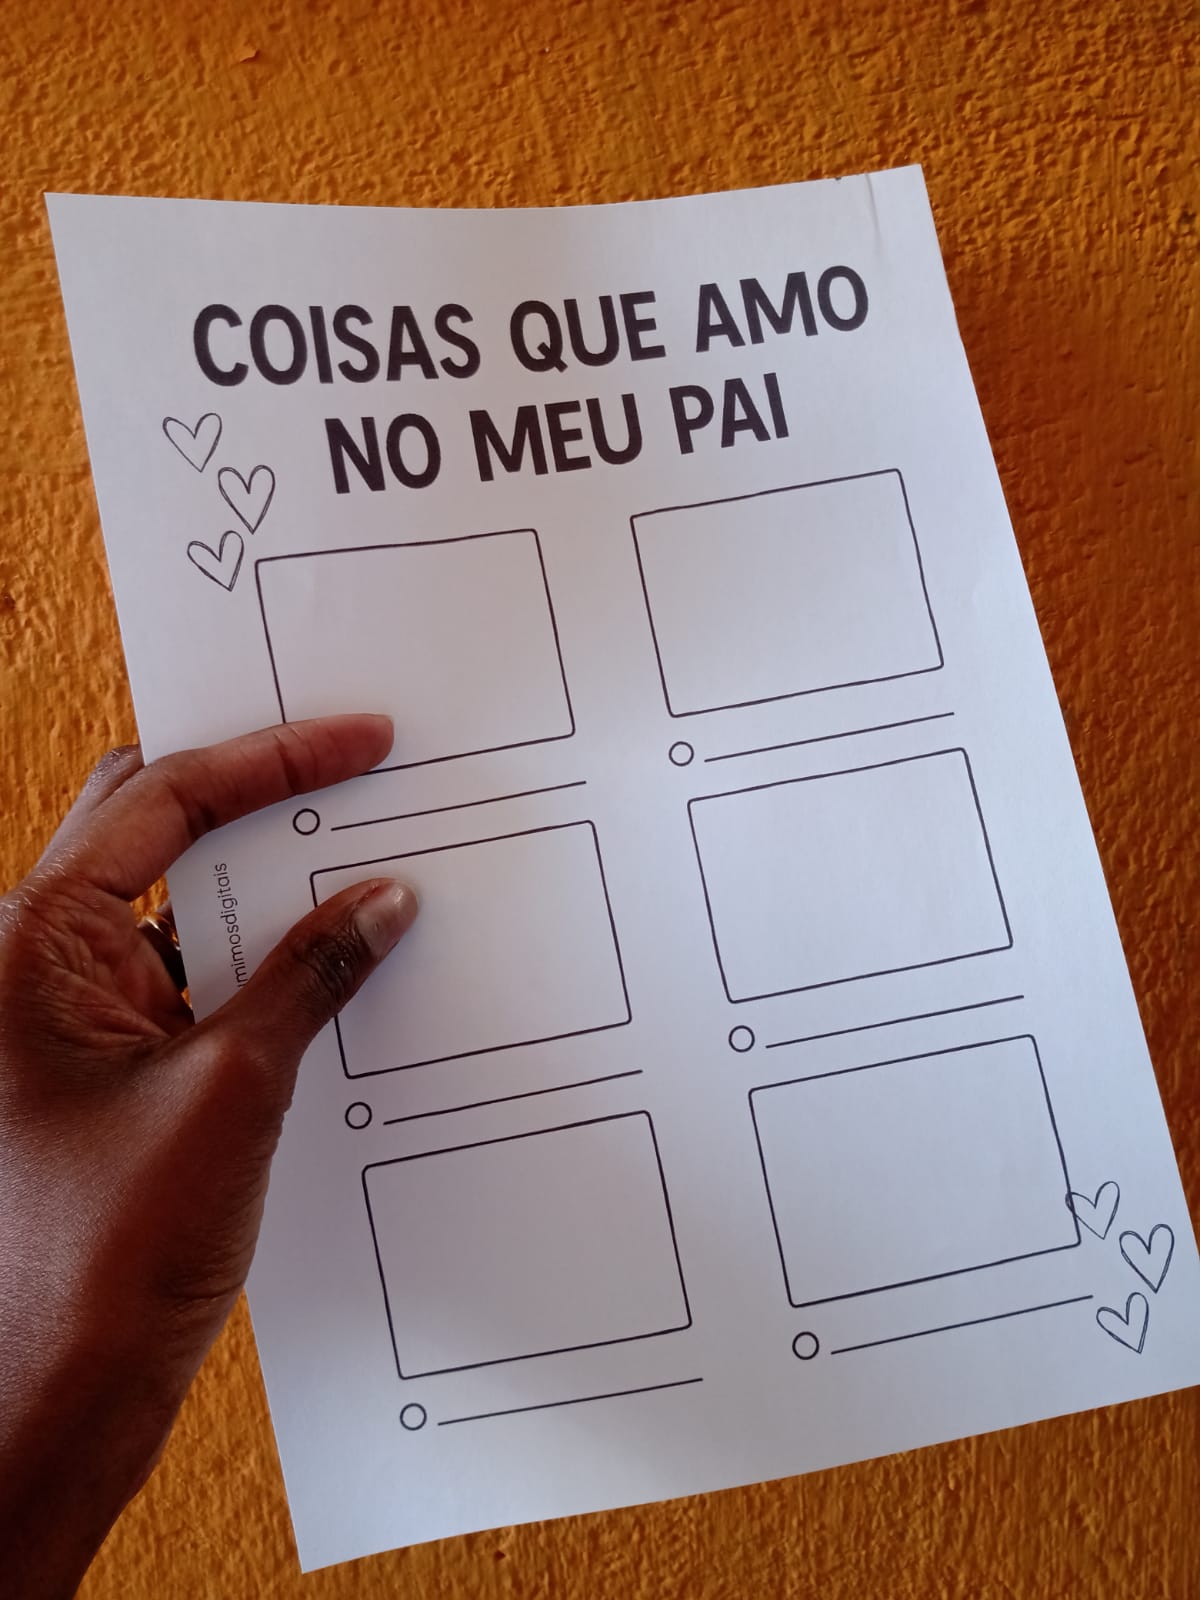 COISAS QUE AMO
NO MEU PAI
mimosdigitais